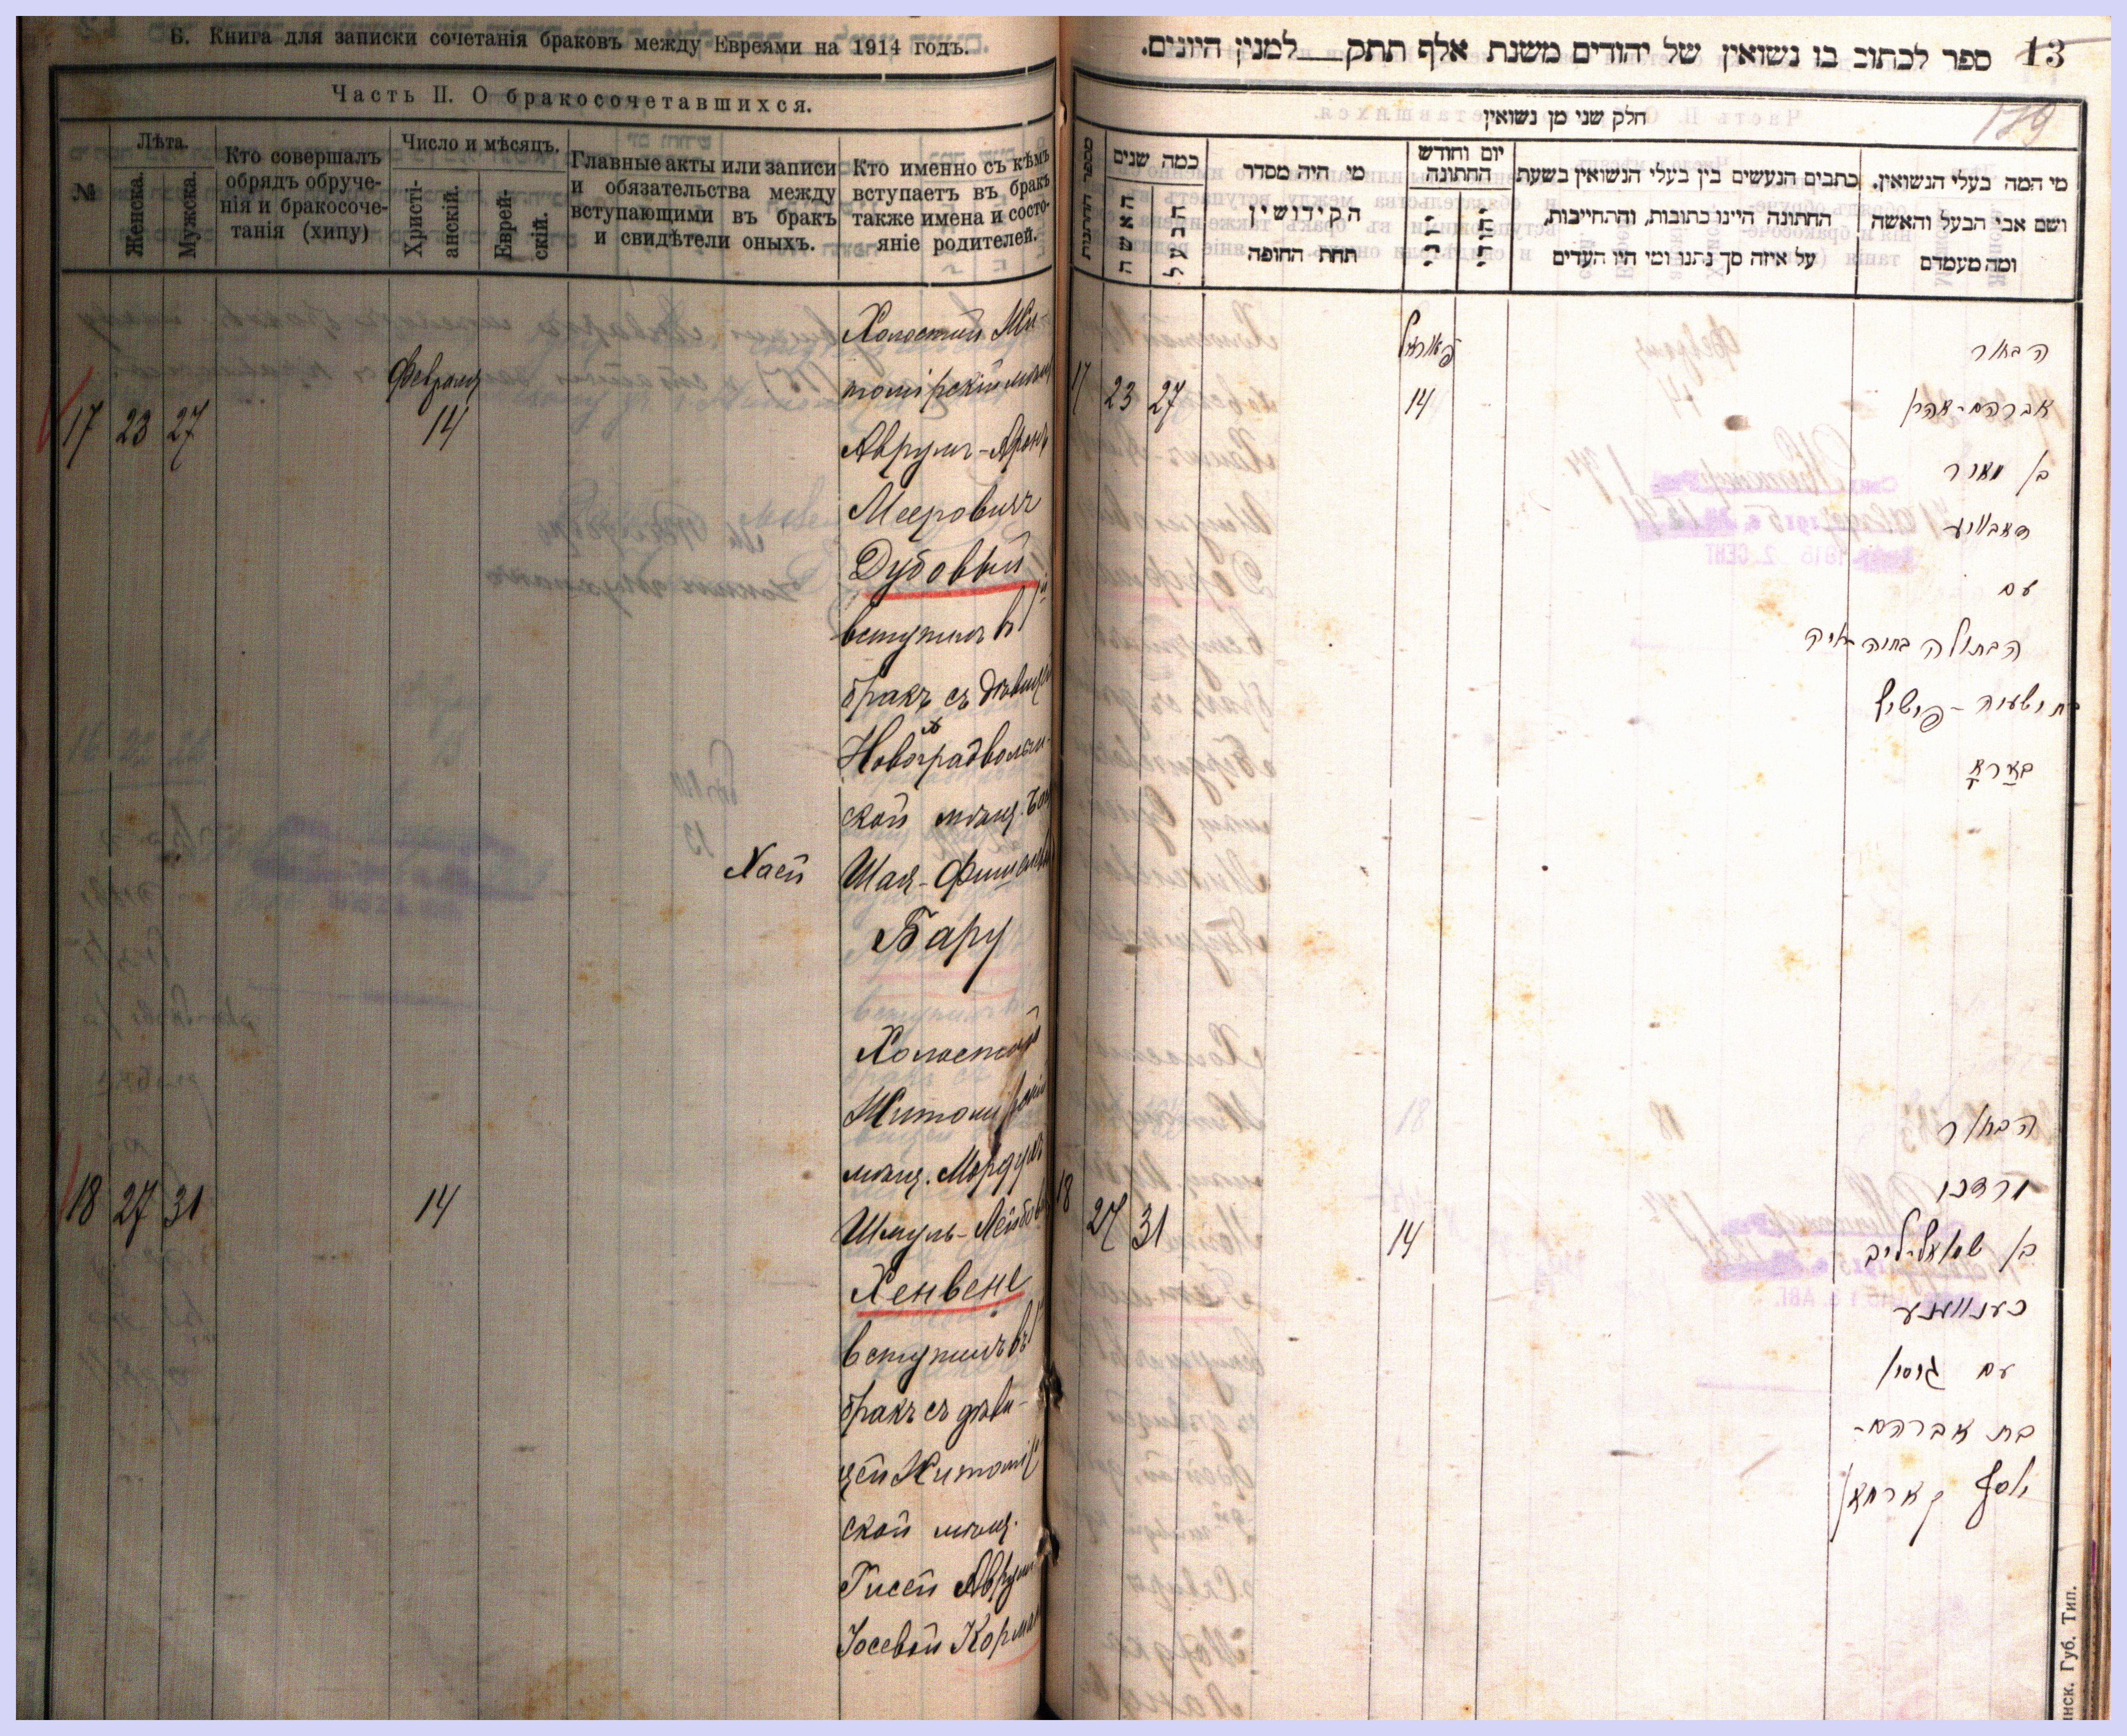 Б. Книга для записки сочетанія браковъ между Евреями на 1914 годъ.
Часть II. О бракосочетавшихся.
№
Лѣта.
Женска.
Мужска.
Кто совершалъ
обрядъ обруче-
нія и бракосоче-
танія (хипу)
Число и мѣсяцъ.
Христі-
анскій.
Еврей-
скій.
Главные акты или записи
и обязательства между
вступающими въ бракъ
и свидѣтели оныхъ.
Кто именно съ кѣмъ
вступаетъ въ бракъ
также имена и состо-
яніе родителей.
17 23 27
Февраля
14
Холостый Жи-
томірскій мѣщ
Аврумъ-Аронъ
Мееровичъ
Дубовый
вступилъ въ
бракъ съ дѣвицей
Новоградволын-
ской мѣщ.
Хаей
Шая-Фишелевой
Бару
18 27 31
14
Холостой
Житомирскій
мѣщ. Мордухъ
Шмуль-Лейбов
Хенвене
вступилъ въ
бракъ съ дѣви-
цей Житомір
ской мѣщ.
Гисей Аврум
Іосевой Корман
13
ספר לכתוב בו נשואין של יהודים משנת אלף תתק למנין היונים.
179
חלק שני מן נשואין
מספר החתונות
כמה שנים
האשה
הבעל
מי היה מסדר
הקידושין
תחת החופה
יום וחודש
החתונה
כתבים הנעשים בין בעלי הנשואין בשעת
החתונה היינו כתובות, והתחייבות,
על איזה סך נתנו ומי היו העדים
מי המה בעלי הנשואין.
ושם אבי הבעל והאשה
ומה מעמדם
17 23 27
14
הבחור
אברהם-אהרן
בן מאיר
דאבאוויע
עם
הבתולה
בת ישעיה-פישיל
בארא
18 27 31
14
הבחור
מרדכי
בן שמואל-ליב
כענוועגע
עם גיסין
בת אברהם-
יוסף קארמאן
инск. Губ. Тип.